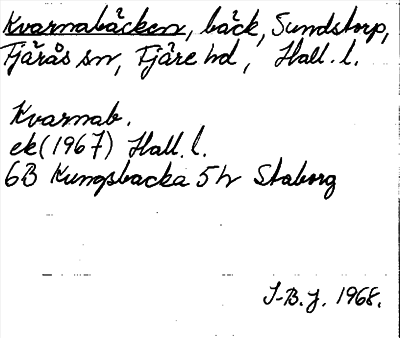 Kvarnabäcken, bäck, Sundstorp,
Fjärås sn, Fjäre hd, Hall. l.
Kvarnab.
ek (1967) Hall. l.
6B Kungsbacka 5h Staborg
I-B.J. 1968.